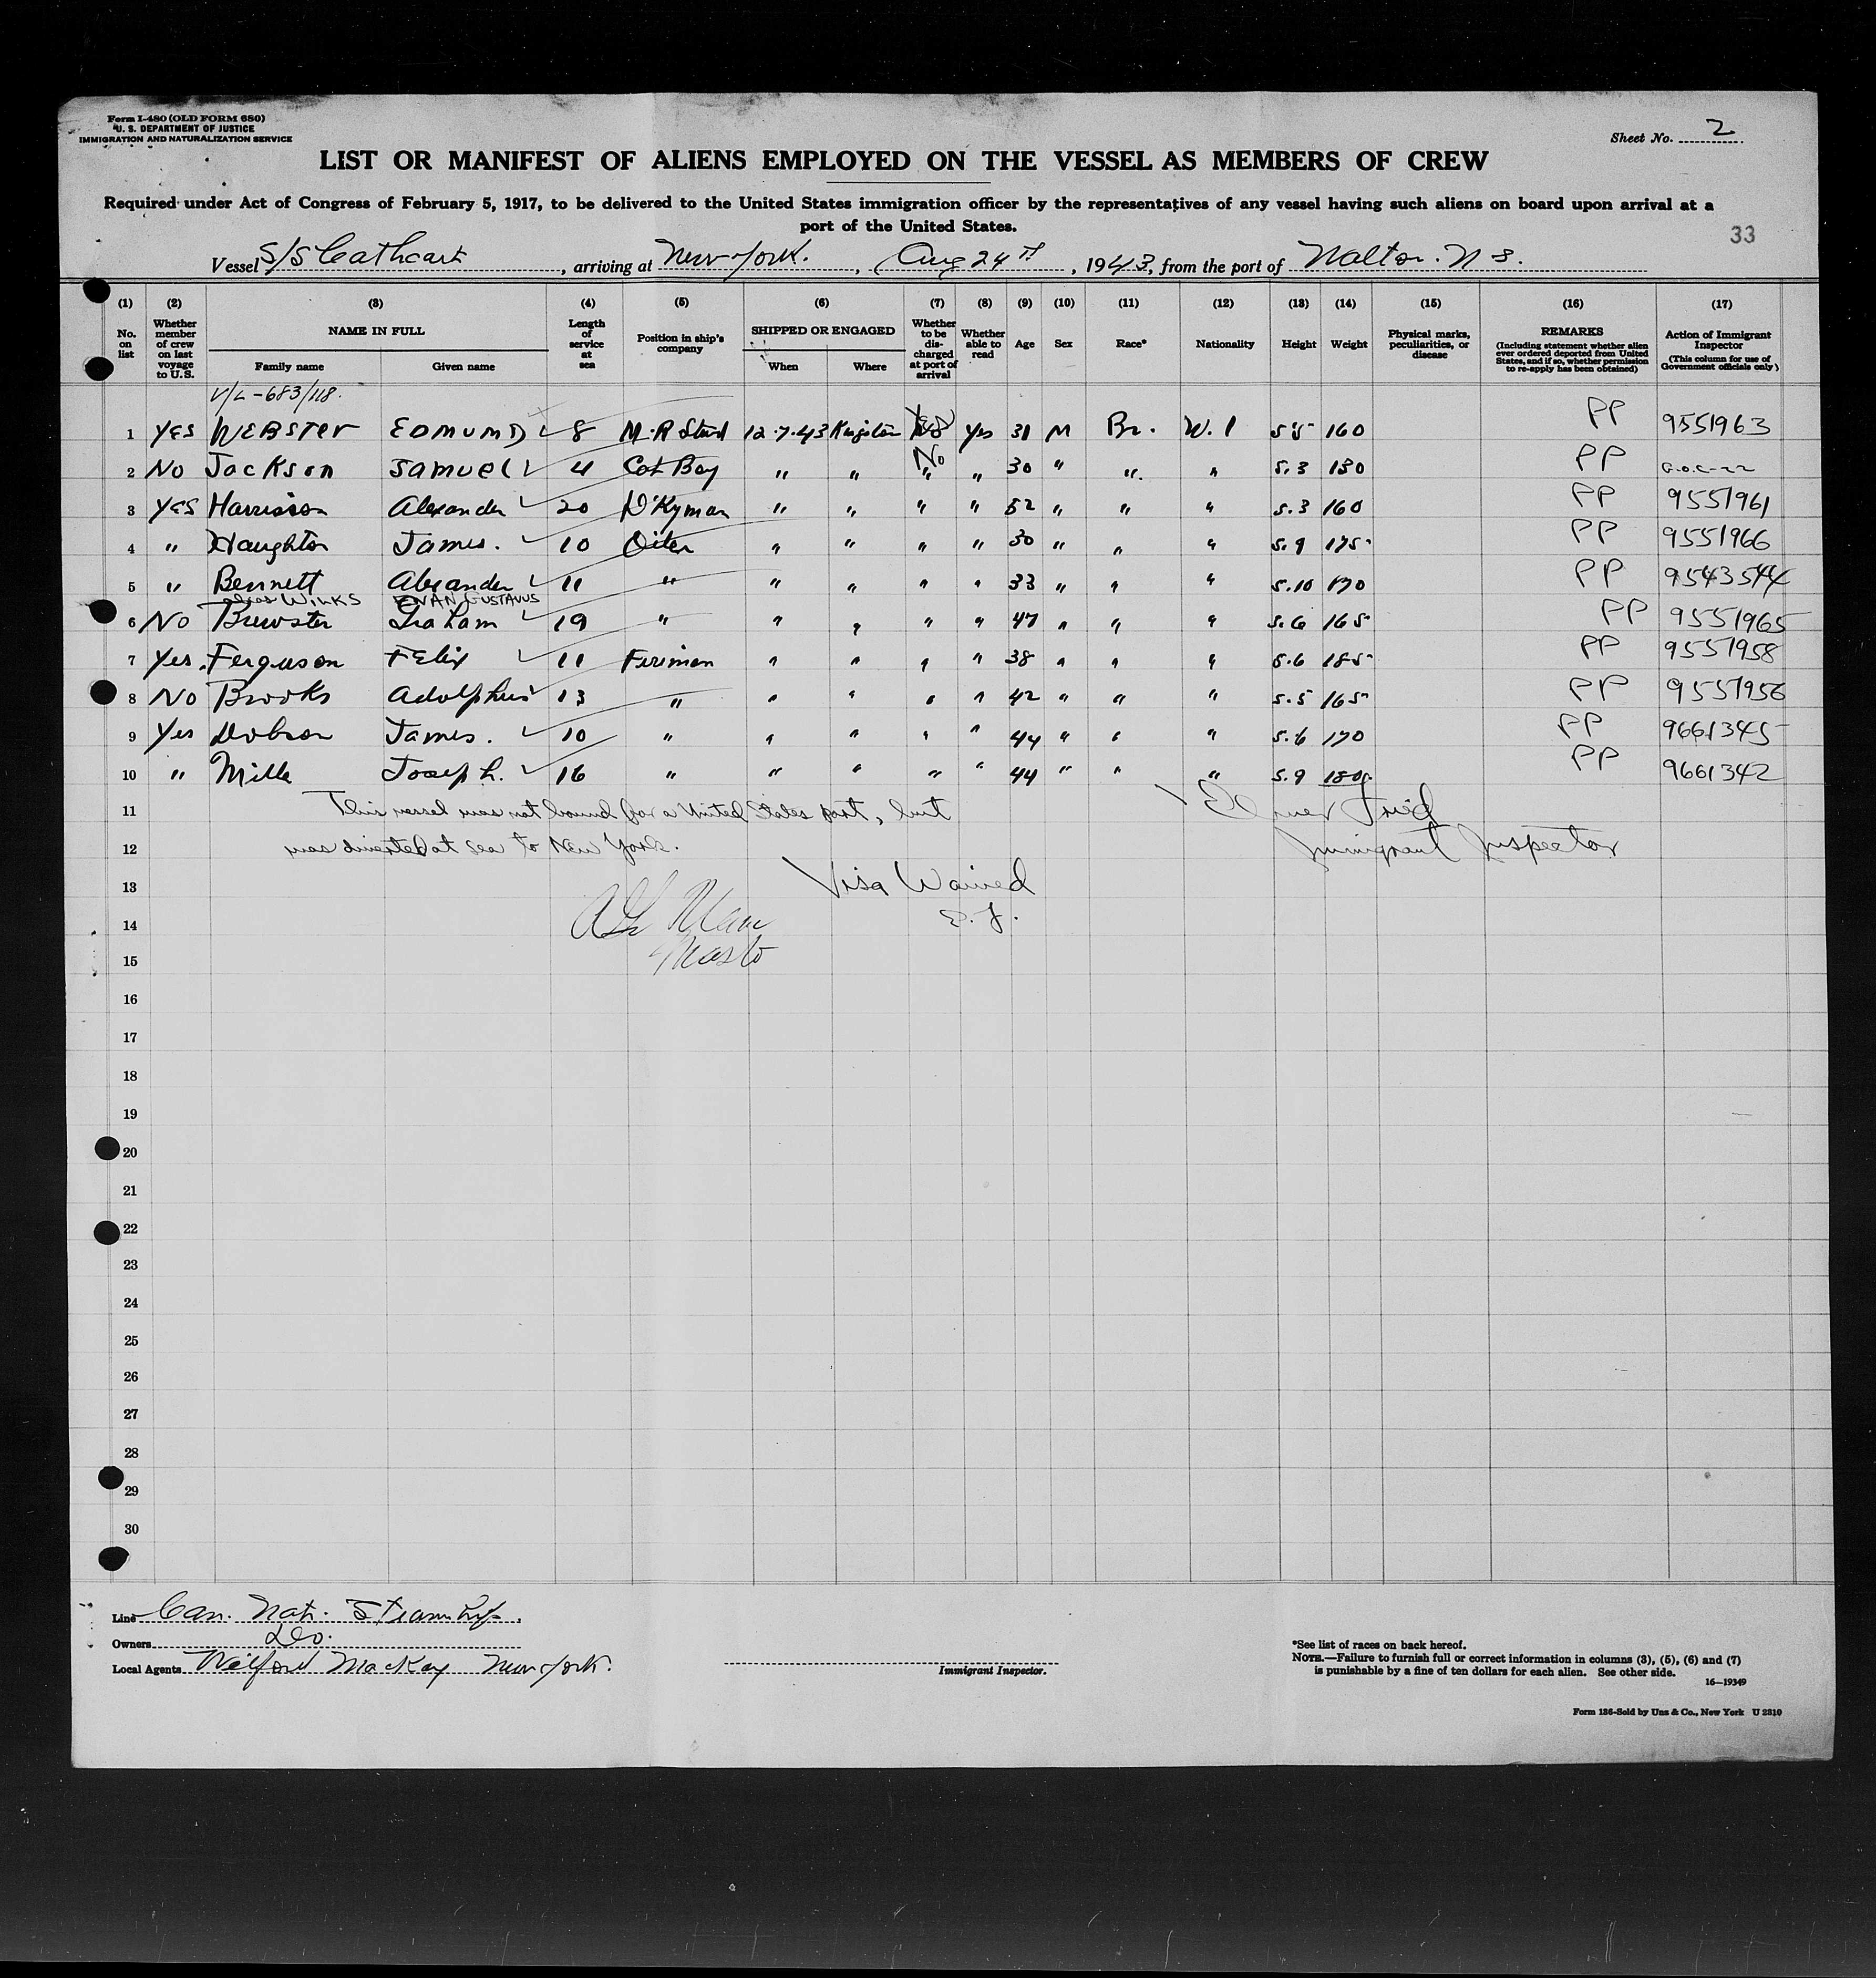 Form I-480 (OLD FORM 680)
U. S. DEPARTMENT OF JUSTICE
IMMIGRATION AND NATURALIZATION SERVICE
Sheet No. 2
LIST OR MANIFEST OF ALIENS EMPLOYED ON THE VESSEL AS MEMBERS OF CREW
Required under Act of Congress of February 5, 1917, to be delivered to the United States immigration officer by the representatives of any vessel having such aliens on board upon arrival at a
port of the United States.
33
Vessel S/S Cathcart, arriving at New York., Aug 24th, 1943, from the port of Walton. N S.
(1) (2) (3) (4) (5) (6) (7) (8) (9) (10) (11) (12) (13) (14) (15) (16) (17)
No. on list
Whether member of crew on last voyage to U.S.
NAME IN FULL
Family name Given name
Length of service at sea
Position in ship's company
SHIPPED OR ENGAGED
When Where
Whether to be discharged at port of arrival
Whether able to read
Age
Sex
Race*
Nationality
Height
Weight
Physical marks, peculiarities, or disease
REMARKS
(Including statement whether alien ever ordered deported from United States, and if so, whether permission to re-apply has been obtained)
Action of Immigrant Inspector
(This column for use of Government officials only)
V/L-683/118.
1 YES WEBSTER EDMUND 8 M.R Stwd 12.7.43 Kingston Yes 31 M Br. W.I 5.5 160 PP 9551963
No
2 No Jackson Samuel 4 Cat Boy " " " " 30 " " " 5.3 130 PP
3 YES Harrison Alexander 20 D'Kyman " " " " 52 " " " 5.3 160 PP 9551961
4 " Haughton James. 10 Oiler " " " " 30 " " " 5.9 175 PP 9551966
5 " Bennett Alexander 11 " " " " " 33 " " " 5.10 170 PP 9543544
alias WINKS EVAN GUSTAVUS
6 No Brewster Graham 19 " " " " " 47 " " " 5.6 165 PP 9551965
7 Yes. Ferguson Felix 11 Fireman " " " " 38 " " " 5.6 185 PP 9551958
8 No Brooks Adolphus 13 " " " " " 42 " " " 5.5 165 PP 9551956
9 Yes Dobson James. 10 " " " " " 44 " " " 5.6 170 PP 9661345
10 " Mills Joseph. 16 " " " " " 44 " " " 5.9 180 PP 9661342
11 This vessel was not bound for a United States port, but Elmer Fried
12 was diverted at sea to New York. Immigrant Inspector
13 Visa Waived
14 E. F.
15
16
17
18
19
20
21
22
23
24
25
26
27
28
29
30
Line Can. Nat. Steamships.
Owners Do.
Local Agents Wilford MacKay New York.
Immigrant Inspector.
*See list of races on back hereof.
NOTE.—Failure to furnish full or correct information in columns (3), (5), (6) and (7)
is punishable by a fine of ten dollars for each alien. See other side.
16—19349
Form 136-Sold by Unz & Co., New York U 2810